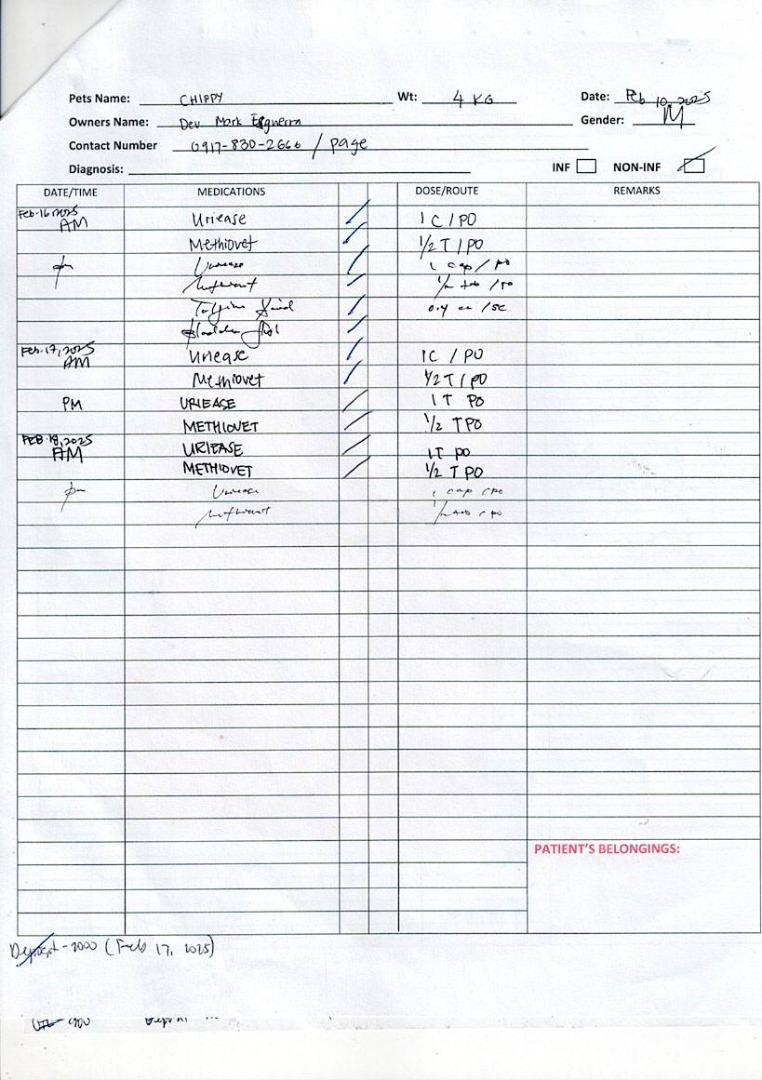 Pets Name: CHIPPY Wt: 4 KG Date: Feb 10, 2025
Owners Name: Dev Mark Gender: M
Contact Number 0917-830-2666 / page
Diagnosis: INF NON-INF
DATE/TIME MEDICATIONS DOSE/ROUTE REMARKS
Feb-16, 2025
AM Uriease 1 C / PO
Methiovet 1/2 T / PO
pm Uriease 1 cap / po
Methiovet 1/2 tab / po
0.4 cc / sc
Feb-17, 2025
AM Uriease 1C / PO
Methiovet 1/2 T / PO
PM URIEASE 1 T PO
METHIOVET 1/2 T PO
FEB 18, 2025
AM URIEASE 1T PO
METHIOVET 1/2 T PO
pm Uriease 1 cap / po
Methiovet 1/2 tab / po
PATIENT'S BELONGINGS:
Deposit - 2000 (Feb 17, 2025)